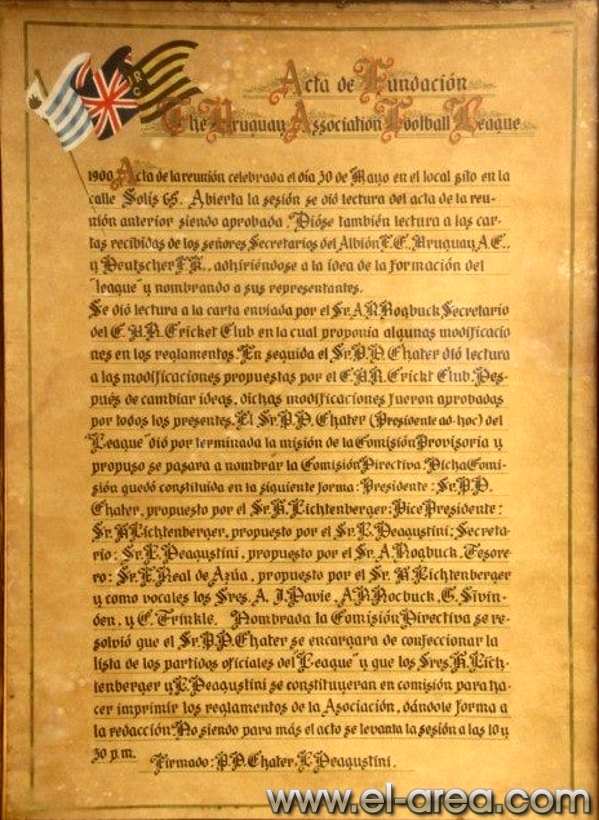 Acta de Fundación
The Uruguay Association Football League
1900 Acta de la reunión celebrada el día 30 de Mayo en el local sito en la
calle Solis 65. Abierta la sesión se oió lectura del acta de la reu-
nión anterior siendo aprobada. Dióse también lectura a las car-
tas recibidas de los señores Secretarios del Albión F.C., Uruguay A.C.,
y Deutscher F.K., adhiriéndose a la idea de la formación del
"league" y nombrando a sus representantes.
Se dió lectura a la carta enviada por el Sr. A.R. Rogbuck Secretario
del C.U.R. Cricket Club en la cual proponía algunas modificacio
nes en los reglamentos. En seguida el Sr. P.D. Chater dió lectura
a las modificaciones propuestas por el C.U.R. Crickt Club. Des-
pués de cambiar ideas, dichas modificaciones fueron aprobadas
por todos los presentes. El Sr. P.D. Chater (Presidente ad-hoc) del
"League" dió por terminada la misión de la Comisión Provisoria y
propuso se pasara a nombrar la Comisión Directiva. Dicha Comi-
sión quedó constituida en la siguiente forma: Presidente: Sr. P.D.
Chater, propuesto por el Sr. H. Lichtenberger; Vice Presidente:
Sr. H. Lichtenberger, propuesto por el Sr. L. Deagustini; Secreta-
rio: Sr. L. Deagustini, propuesto por el Sr. A. Rogbuck, Tesore-
ro: Sr. F. Real de Azúa, propuesto por el Sr. H. Lichtenberger
y como vocales los Sres. A. J. Davie, A.R. Rocbuck, C. Sivin-
den, y C. Trinkle. Nombrada la Comisión Directiva se re-
solvió que el Sr. P.D. Chater se encargara de confeccionar la
lista de los partidos oficiales del "League" y que los Sres. H. Lich-
tenberger y L. Deagustini se constituyeran en comisión para ha-
cer imprimir los reglamentos de la Asociación, dándole forma a
la redacción. No siendo para más el acto se levanta la sesión a las 10 y
30 p.m.
Firmado: P.D. Chater, L. Deagustini.
www.el-area.com